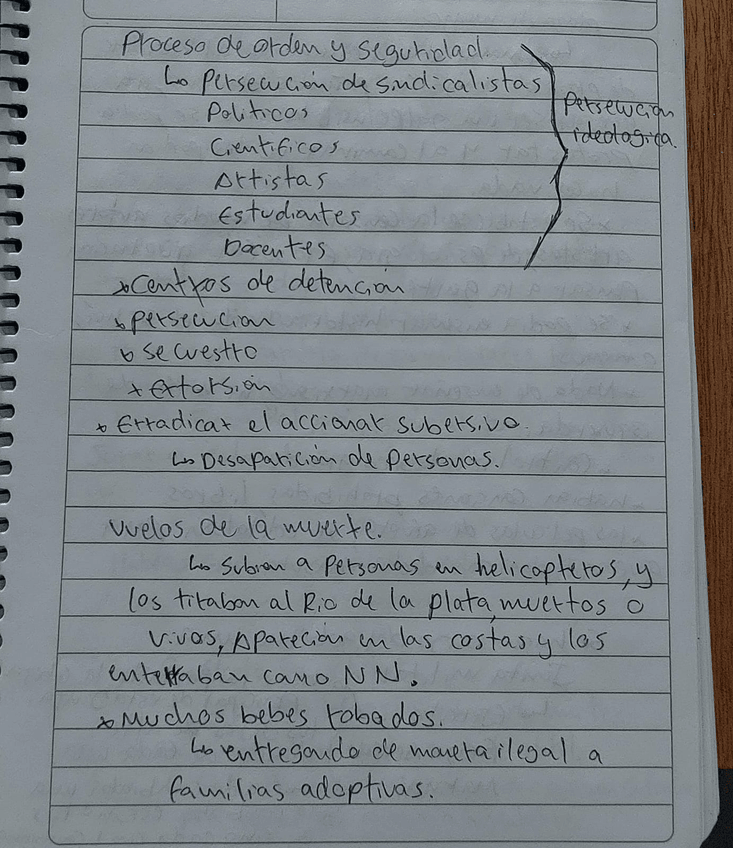 Proceso de orden y seguridad.
↳ Persecución de sindicalistas
Politicos
Cientificos
Artistas
Estudiantes
Docentes
Persecución
ideologica.
* Centros de detención
* persecucion
* secuestro
* extorsión
* Erradicar el accionar subersivo.
↳ Desaparición de personas.
Vuelos de la muerte.
↳ Subian a personas en helicopteros, y
los tiraban al Rio de la plata, muertos o
vivos, Aparecian en las costas y los
enterraban como NN.
* Muchos bebes robados.
↳ entregando de manera ilegal a
familias adoptivas.